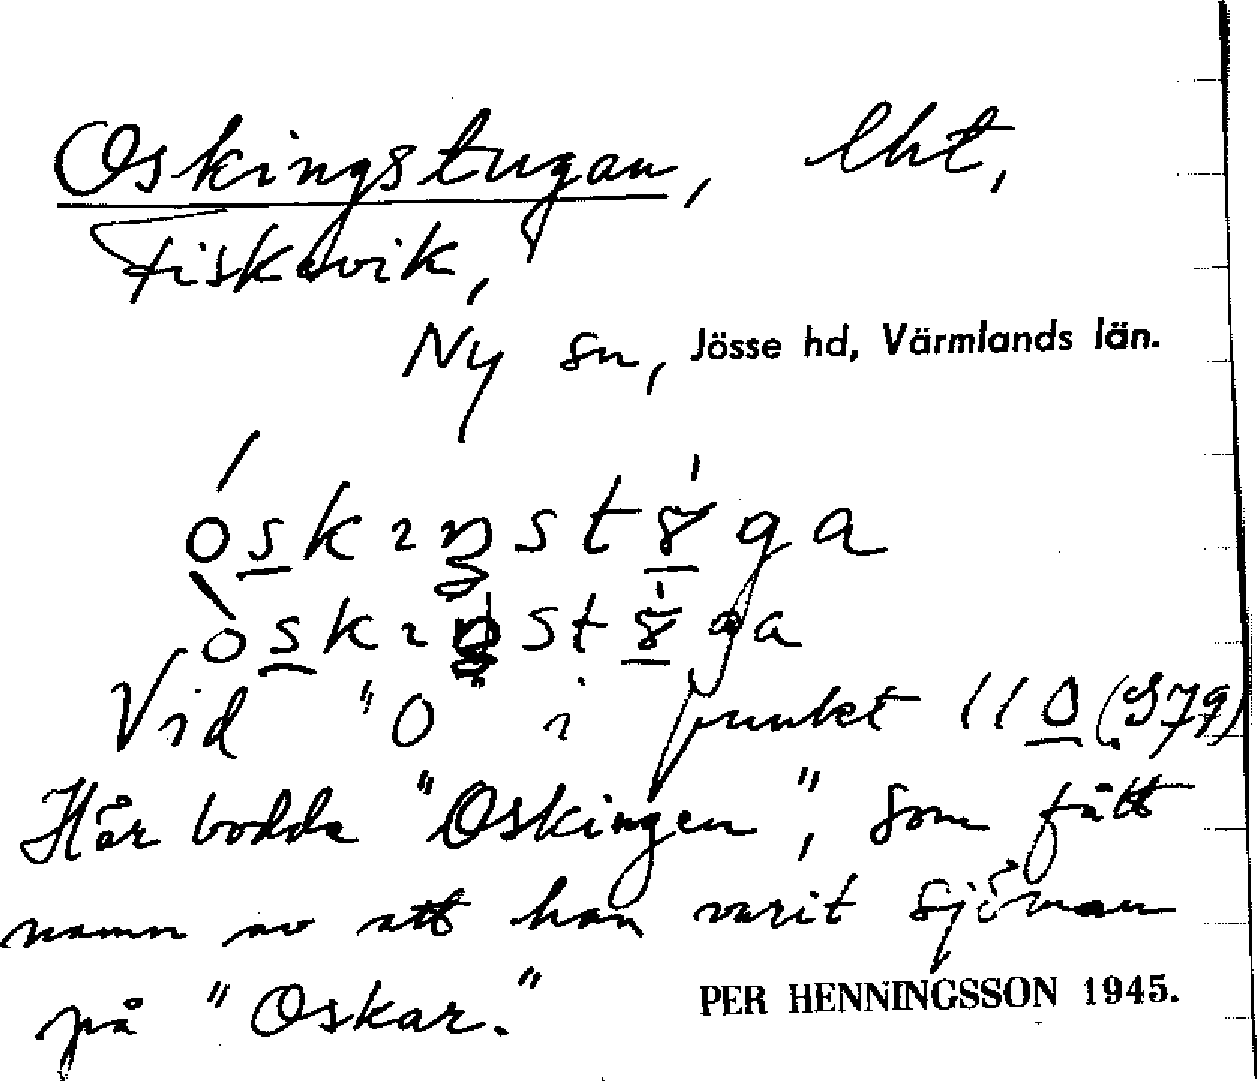 Oskingstugan, lht,
Fiskevik,
Ny sn, Jösse hd, Värmlands län.
Vid "O" i punkt 110 (S79)
Här bodde "Oskingen", som fått
namn av att han varit sjöman
på "Oskar."
PER HENNINGSSON 1945.